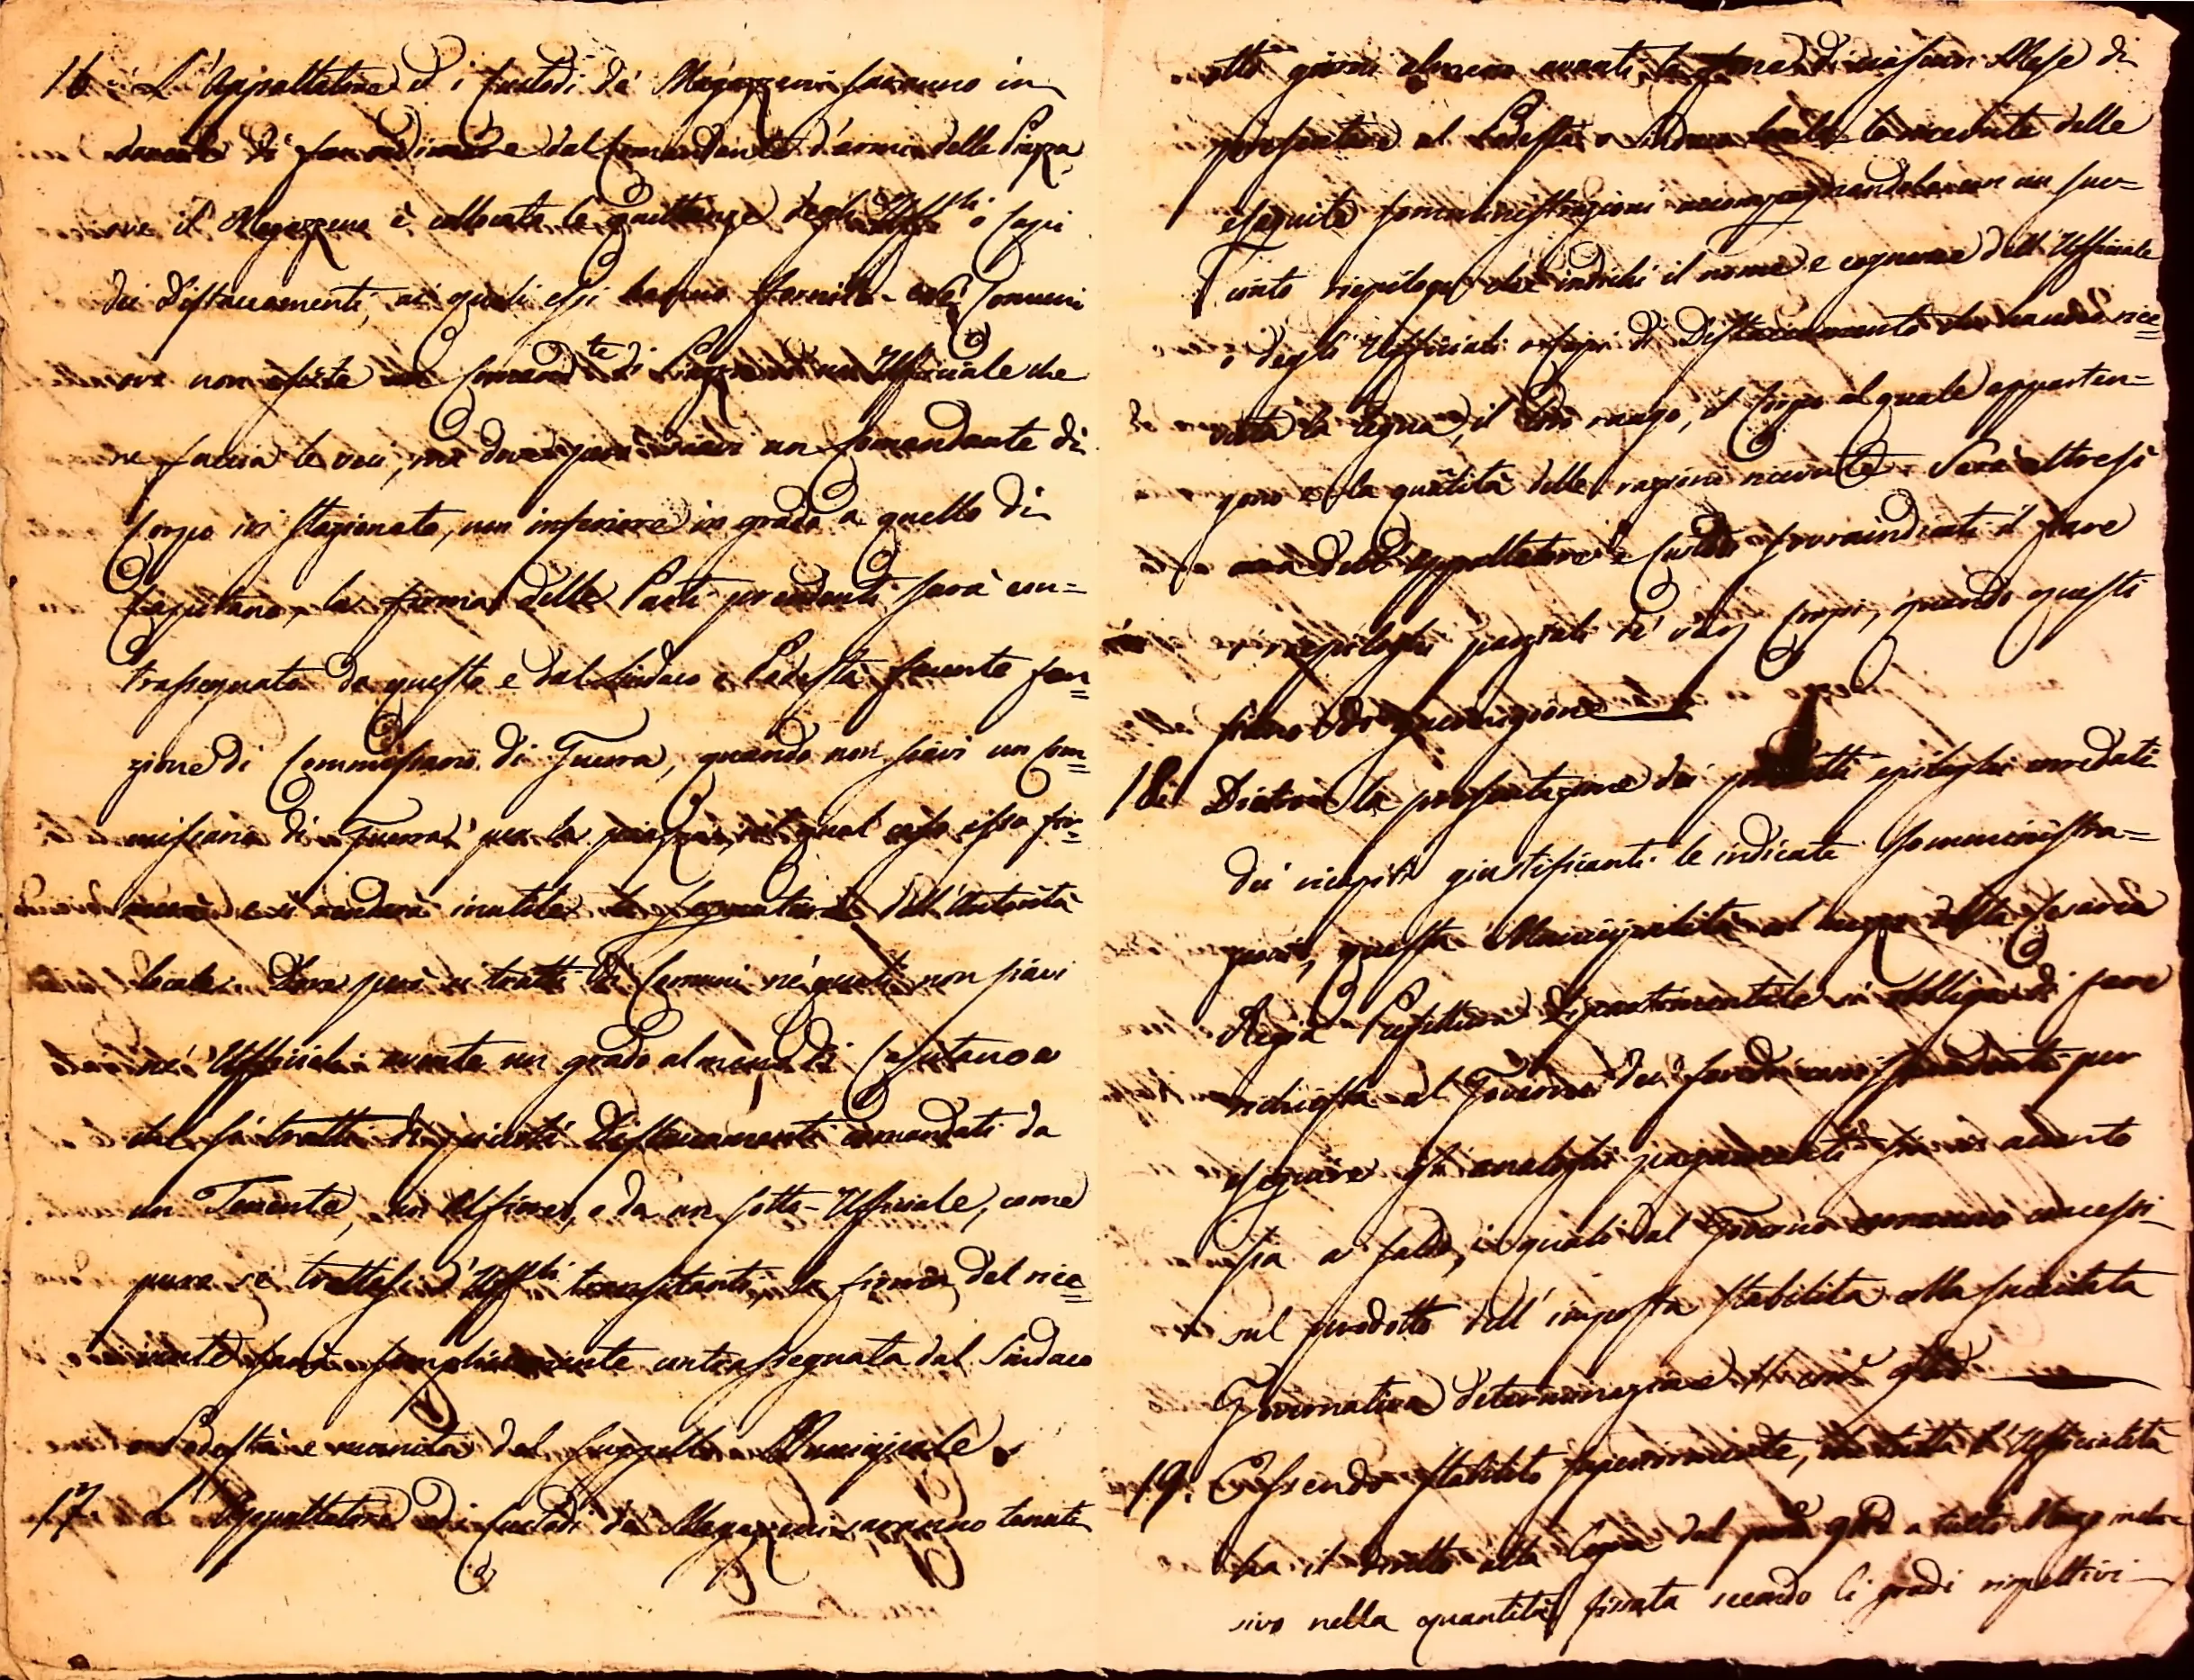 16. L'Appaltatore e i Custodi de' Magazzeni saranno in
di far vidimare dal Comandante d'armi della Piazza,
ove il Magazzeno è collocato le quittanze degli Uff.li o Capi
dei Distaccamenti, ai quali essi hanno fornito. Ne' Comuni
ove non esiste un Comand.te di Piazza od un Ufficiale che
ne faccia le veci, ma dove però siavi un Comandante di
Corpo ivi stazionato, non inferiore in grado a quello di
Capitano, la firma delle Parti prendenti sarà con=
trassegnata da questo e dal Sindaco o Podestà facente fon=
zione di Commessario di Guerra, quando non siavi un Com=
missario di Guerra per la piazza, nel qual caso esso fir=
merà e si renderà inutile la segnatura dell'Autorità
locale. Dove però si tratti di Comuni ne' quali non siavi
Ufficiale avente un grado almeno di Capitano e
che si tratti di Distaccamenti comandati da
un Tenente, un Alfiere, o da un sotto-Ufficiale, come
pure se trattasi d'Uff.li transitanti, la firma del rice=
vente sarà semplicemente contrassegnata dal Sindaco
o Podestà e munita del suggello Municipale.
17. L'Appaltatore e di Custodi de' Magazzeni saranno tenuti
otto giorni almeno avanti la fine di ciascun Mese di
presentare al Podestà o Sindaco locale le ricevute delle
eseguite somministrazioni accompagnandole con un suc=
cinto riepilogo che indichi il nome e cognome dell'Ufficiale
o degli Ufficiali o Capi di Distaccamento che hanno rice=
vuta la legna, il loro rango, il Corpo al quale apparten=
gono e la quãtità delle razioni ricevute. Sarà altresì
cura dell'Appaltatore e Custodi sovraindicati il fare
i riepiloghi parziali de' varj Corpi, quando questi
siano di guarnigione
18. Dietro la presentazione dei epiloghi corredati
dei ricapiti giustificanti le indicate somministra=
zioni, questa Municipalità col mezzo della Cesarea
Regia Prefettura Dipartimentale si obbliga di fare
richiesta al Governo dei fondi corrispondenti per
eseguire gli analoghi pagamenti sia in acconto
sia a saldo, i quali dal Governo verranno concessi
sul prodotto dell'imposta stabilita colla succitata
Governativa determinazione
19. Essendo stabilito superiormente, che tutta l'Ufficialità
ha il diritto alla Legna dal primo a tutto Marzo inclu=
sivo nella quantità fissata secondo li gradi rispettivi